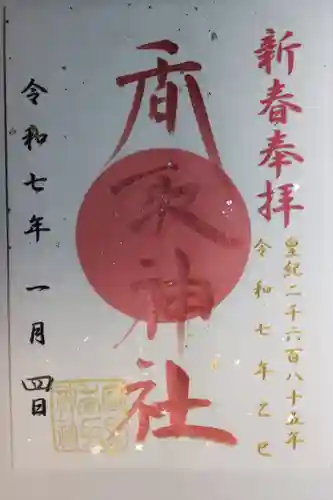 新春奉拝
皇紀二千六百八十五年
令和七年乙巳
香取神社
令和七年一月四日